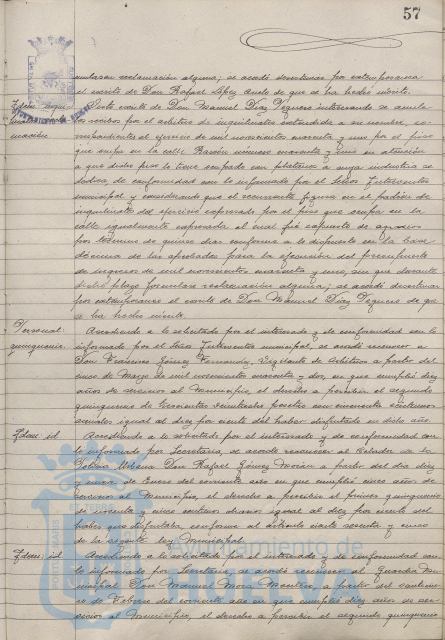 57
mulasen reclamación alguna; se acordó desestimar por extemporaneo
el escrito de Don Rafael López de que se ha hecho mérito.
Idem Visto escrito de Don Manuel Díaz Vegueis interesando se anula-
recibos por el arbitrio de inquilinatos extendidos a su nombre, co-
rrespondientes al ejercicio de mil novecientos cuarenta y uno por el piso
que ocupa en la calle Rascón número cuarenta y uno en atención
a que dicho piso lo tiene ocupado con a cuya industria se
dedica, de conformidad con lo informado por el Señor Interventor
municipal y considerando que el recurrente figura en el padrón de
inquilinatos del ejercicio expresado por el piso que ocupa en la
calle igualmente expresada, el cual fué expuesto de agravios
por término de quince días conforme a lo dispuesto en la base
décima de las aprobadas para la ejecución del presupuesto
de ingresos de mil novecientos cuarenta y uno, sin que durante
dicho plazo formulase reclamación alguna; se acordó desestimar
por extemporaneo el escrito de Don Manuel Díaz Vegueis de que
se ha hecho mérito.
Personal: Accediendo a lo solicitado por el interesado y de conformidad con lo
quinquenio. informado por el Señor Interventor municipal, se acordó reconocer a
Don Francisco Gómez Fernández, Vigilante de Arbitrios a partir del
cinco de Marzo de mil novecientos cuarenta y dos, en que cumplió diez
años de servicios al Municipio, el derecho a percibir el segundo
quinquenio de trescientas veintiocho pesetas con cincuenta céntimos
anuales igual al diez por ciento del haber disfrutado en dicho año.
Idem: id. Accediendo a lo solicitado por el interesado y de conformidad con
lo informado por Secretaría, se acordó reconocer al Celador de la
Policía Urbana Don Rafael Gómez Morán a partir del día diez
y nueve de Enero del corriente año en que cumplió cinco años de
servicios al Municipio, el derecho a percibir el primer quinquenio
de noventa y cinco céntimos diarios igual al diez por ciento del
haber que disfrutaba, conforme al artículo ciento sesenta y cinco
de la vigente Ley Municipal.
Idem: id. Accediendo a lo solicitado por el interesado y de conformidad con
lo informado por Secretaría se acordó reconocer al Guardia Mu-
nicipal Don Manuel Mora Montero, a partir del
de Febrero del corriente año en que cumplió diez años de ser-
vicios al Municipio, el derecho a percibir el segundo quinquenio
Ayuntamiento de
HUELVA